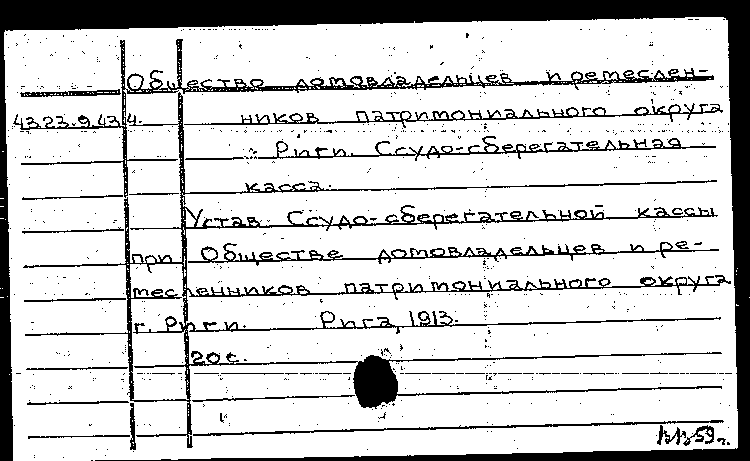 Общество домовладельцев и ремеслен-
43.23.9.43 4. ников патримониального округа
Риги. Ссудо-сберегательная
касса.
Устав Ссудо-сберегательной кассы
при Обществе домовладельцев и ре-
месленников патримониального округа
г. Риги. Рига, 1913.
20 с.
59 г.